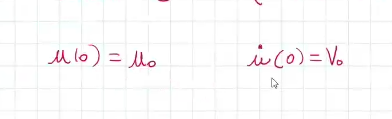 u(0) = u₀ u̇(0) = V₀